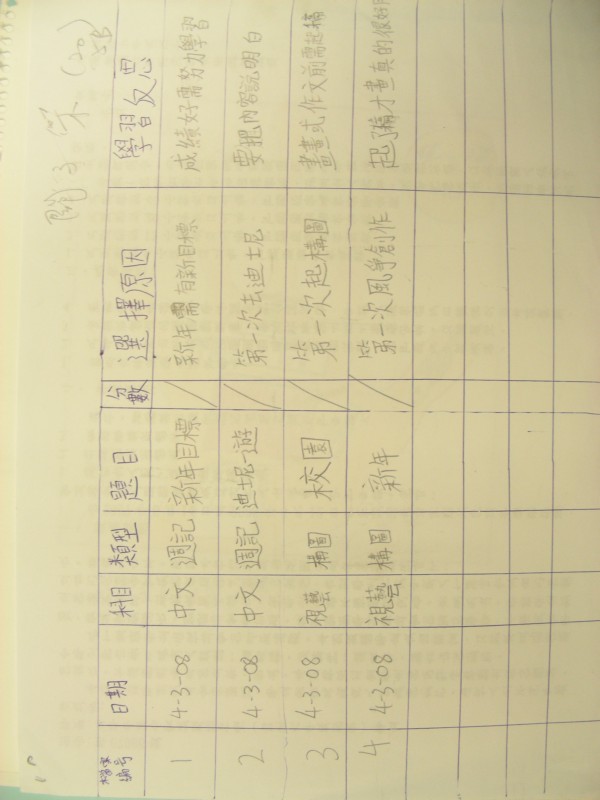 (20) 5B
檔案編號 日期 科目 類型 題目 分數 選擇原因 學習反思
1 4-3-08 中文 週記 新年目標 / 新年需有新目標 成績好需努力學習
2 4-3-08 中文 週記 迪士尼遊 / 第一次去迪士尼 要把內容說明白
3 4-3-08 視藝 構圖 校園 / 第一次起構圖 畫畫或作文前需起稿
4 4-3-08 視藝 構圖 新年 / 第一次風爭創作 起了稿才畫真的很好用